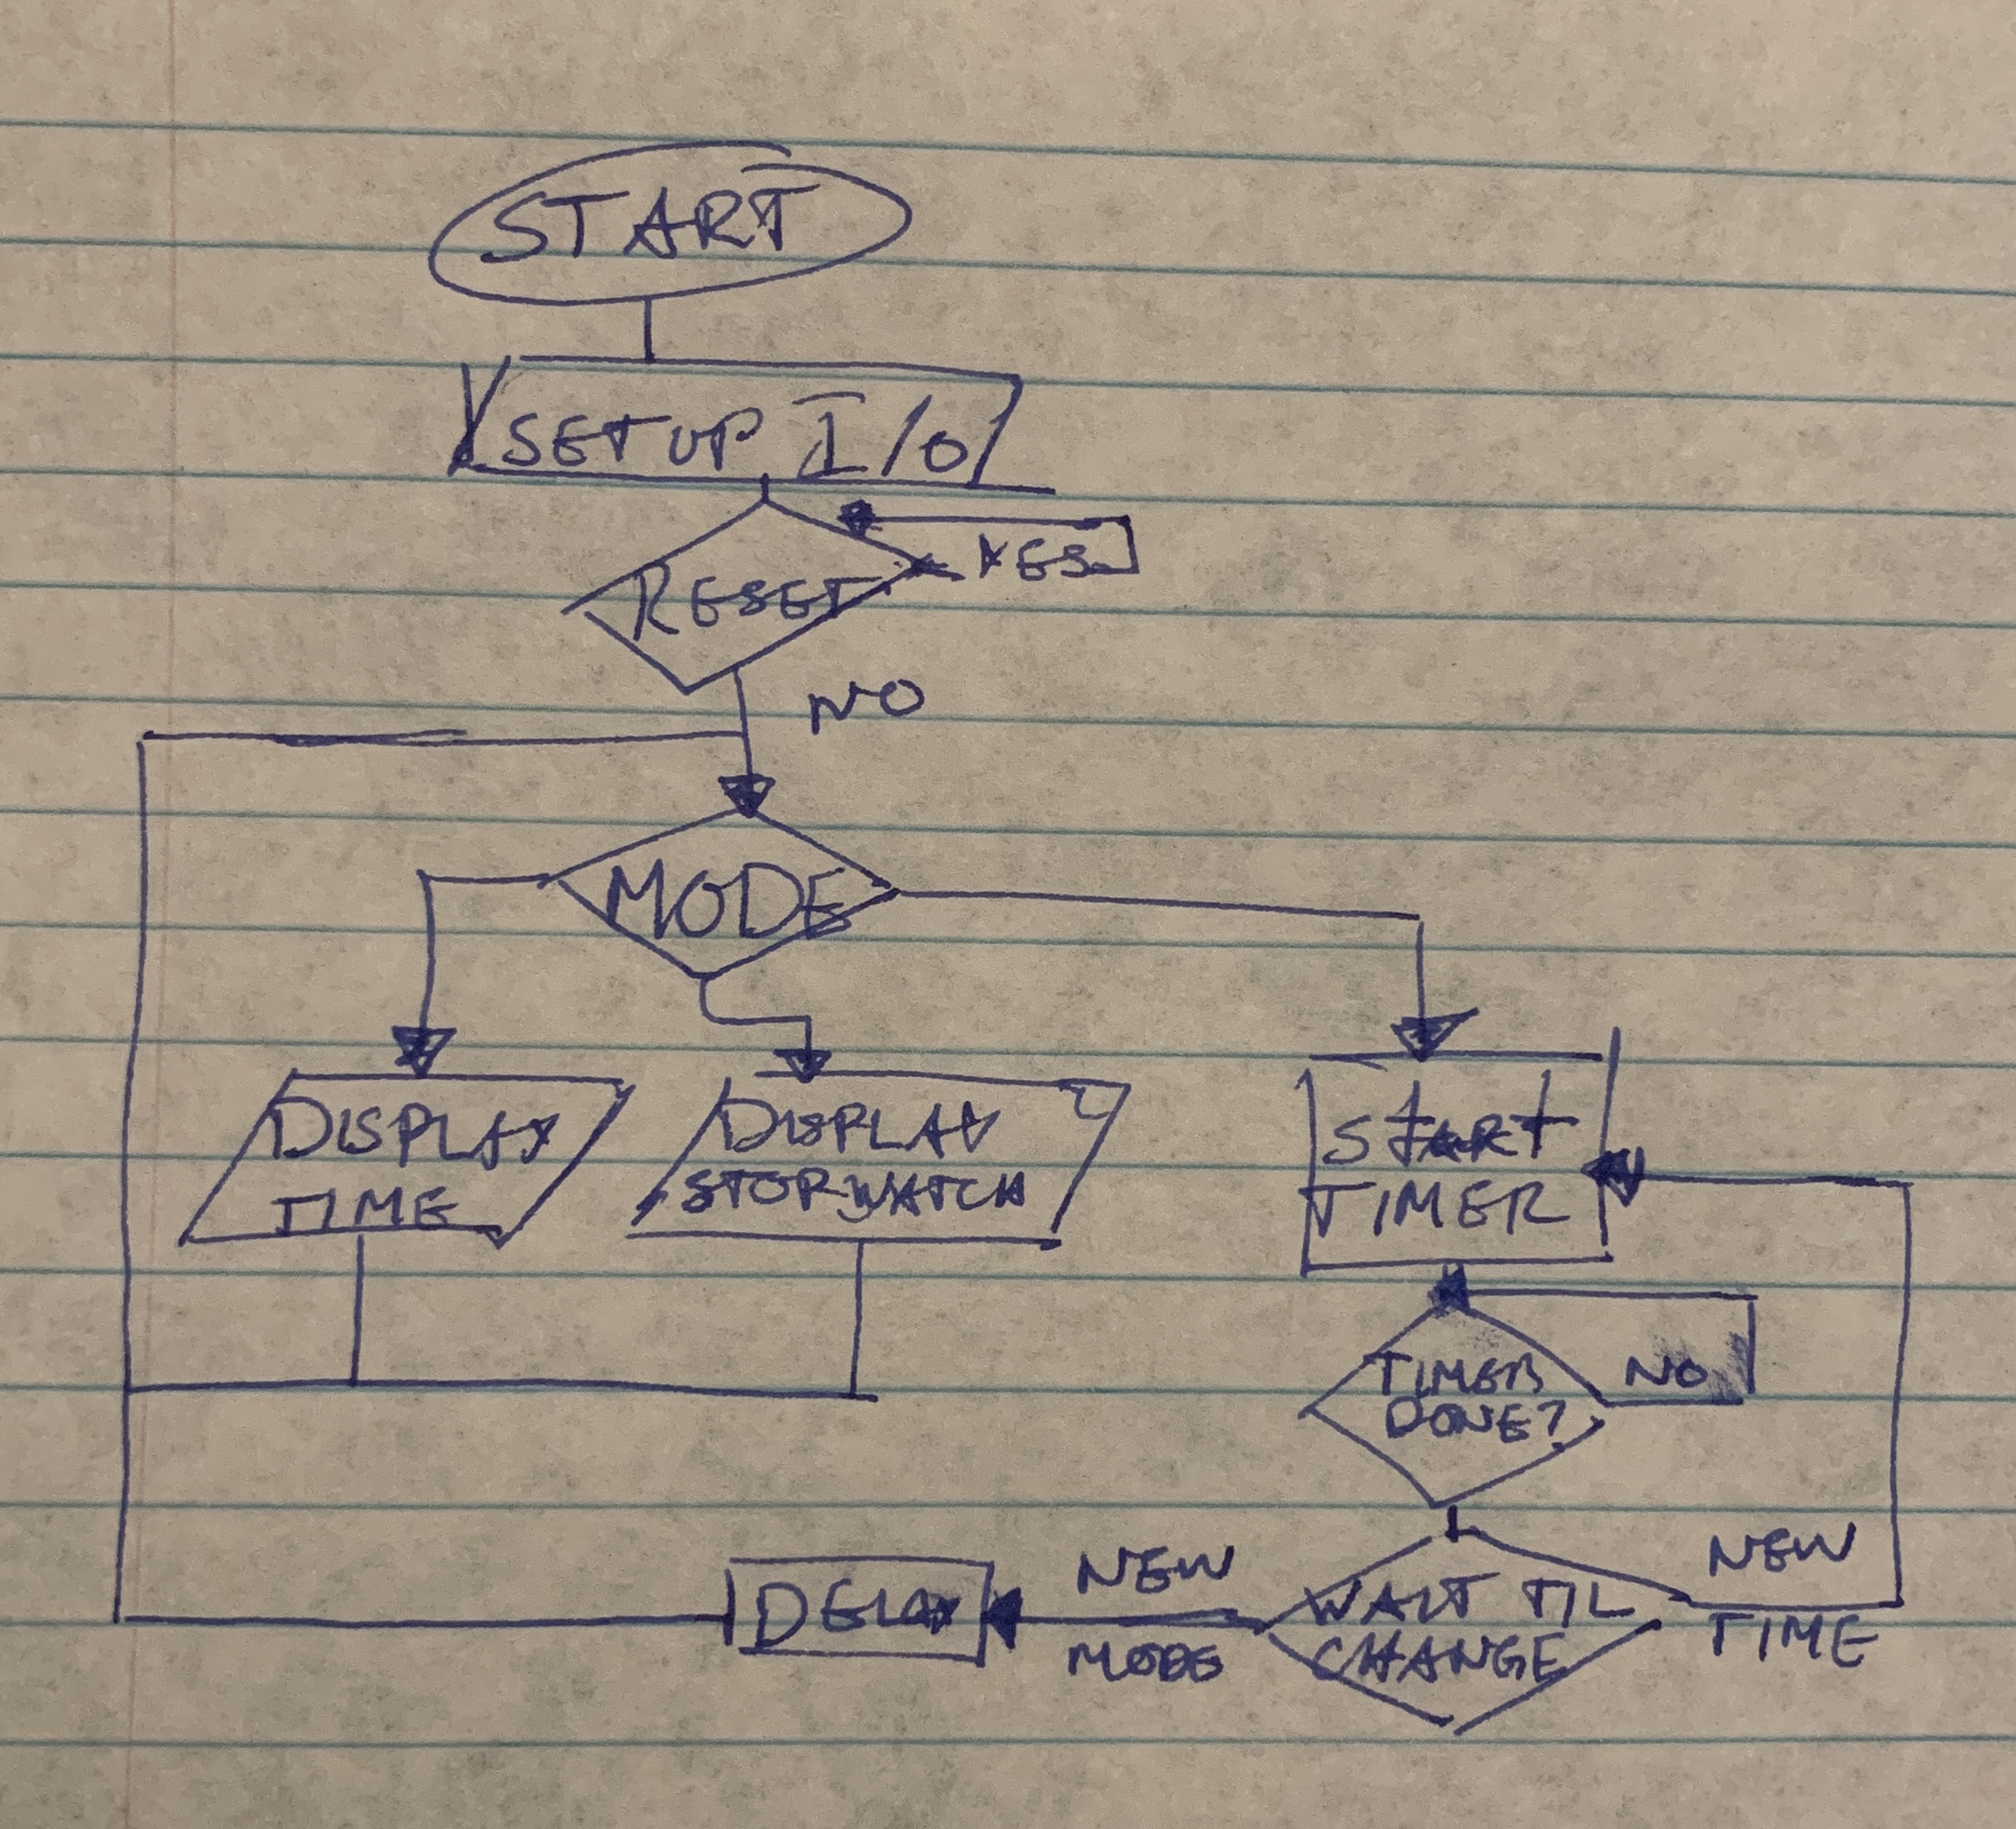 START
SETUP I/O
RESET
YES
NO
MODE
DISPLAY
TIME
DISPLAY
STOPWATCH
START
TIMER
TIMER
DONE?
NO
WAIT TIL
CHANGE
NEW
TIME
NEW
MODE
DELAY